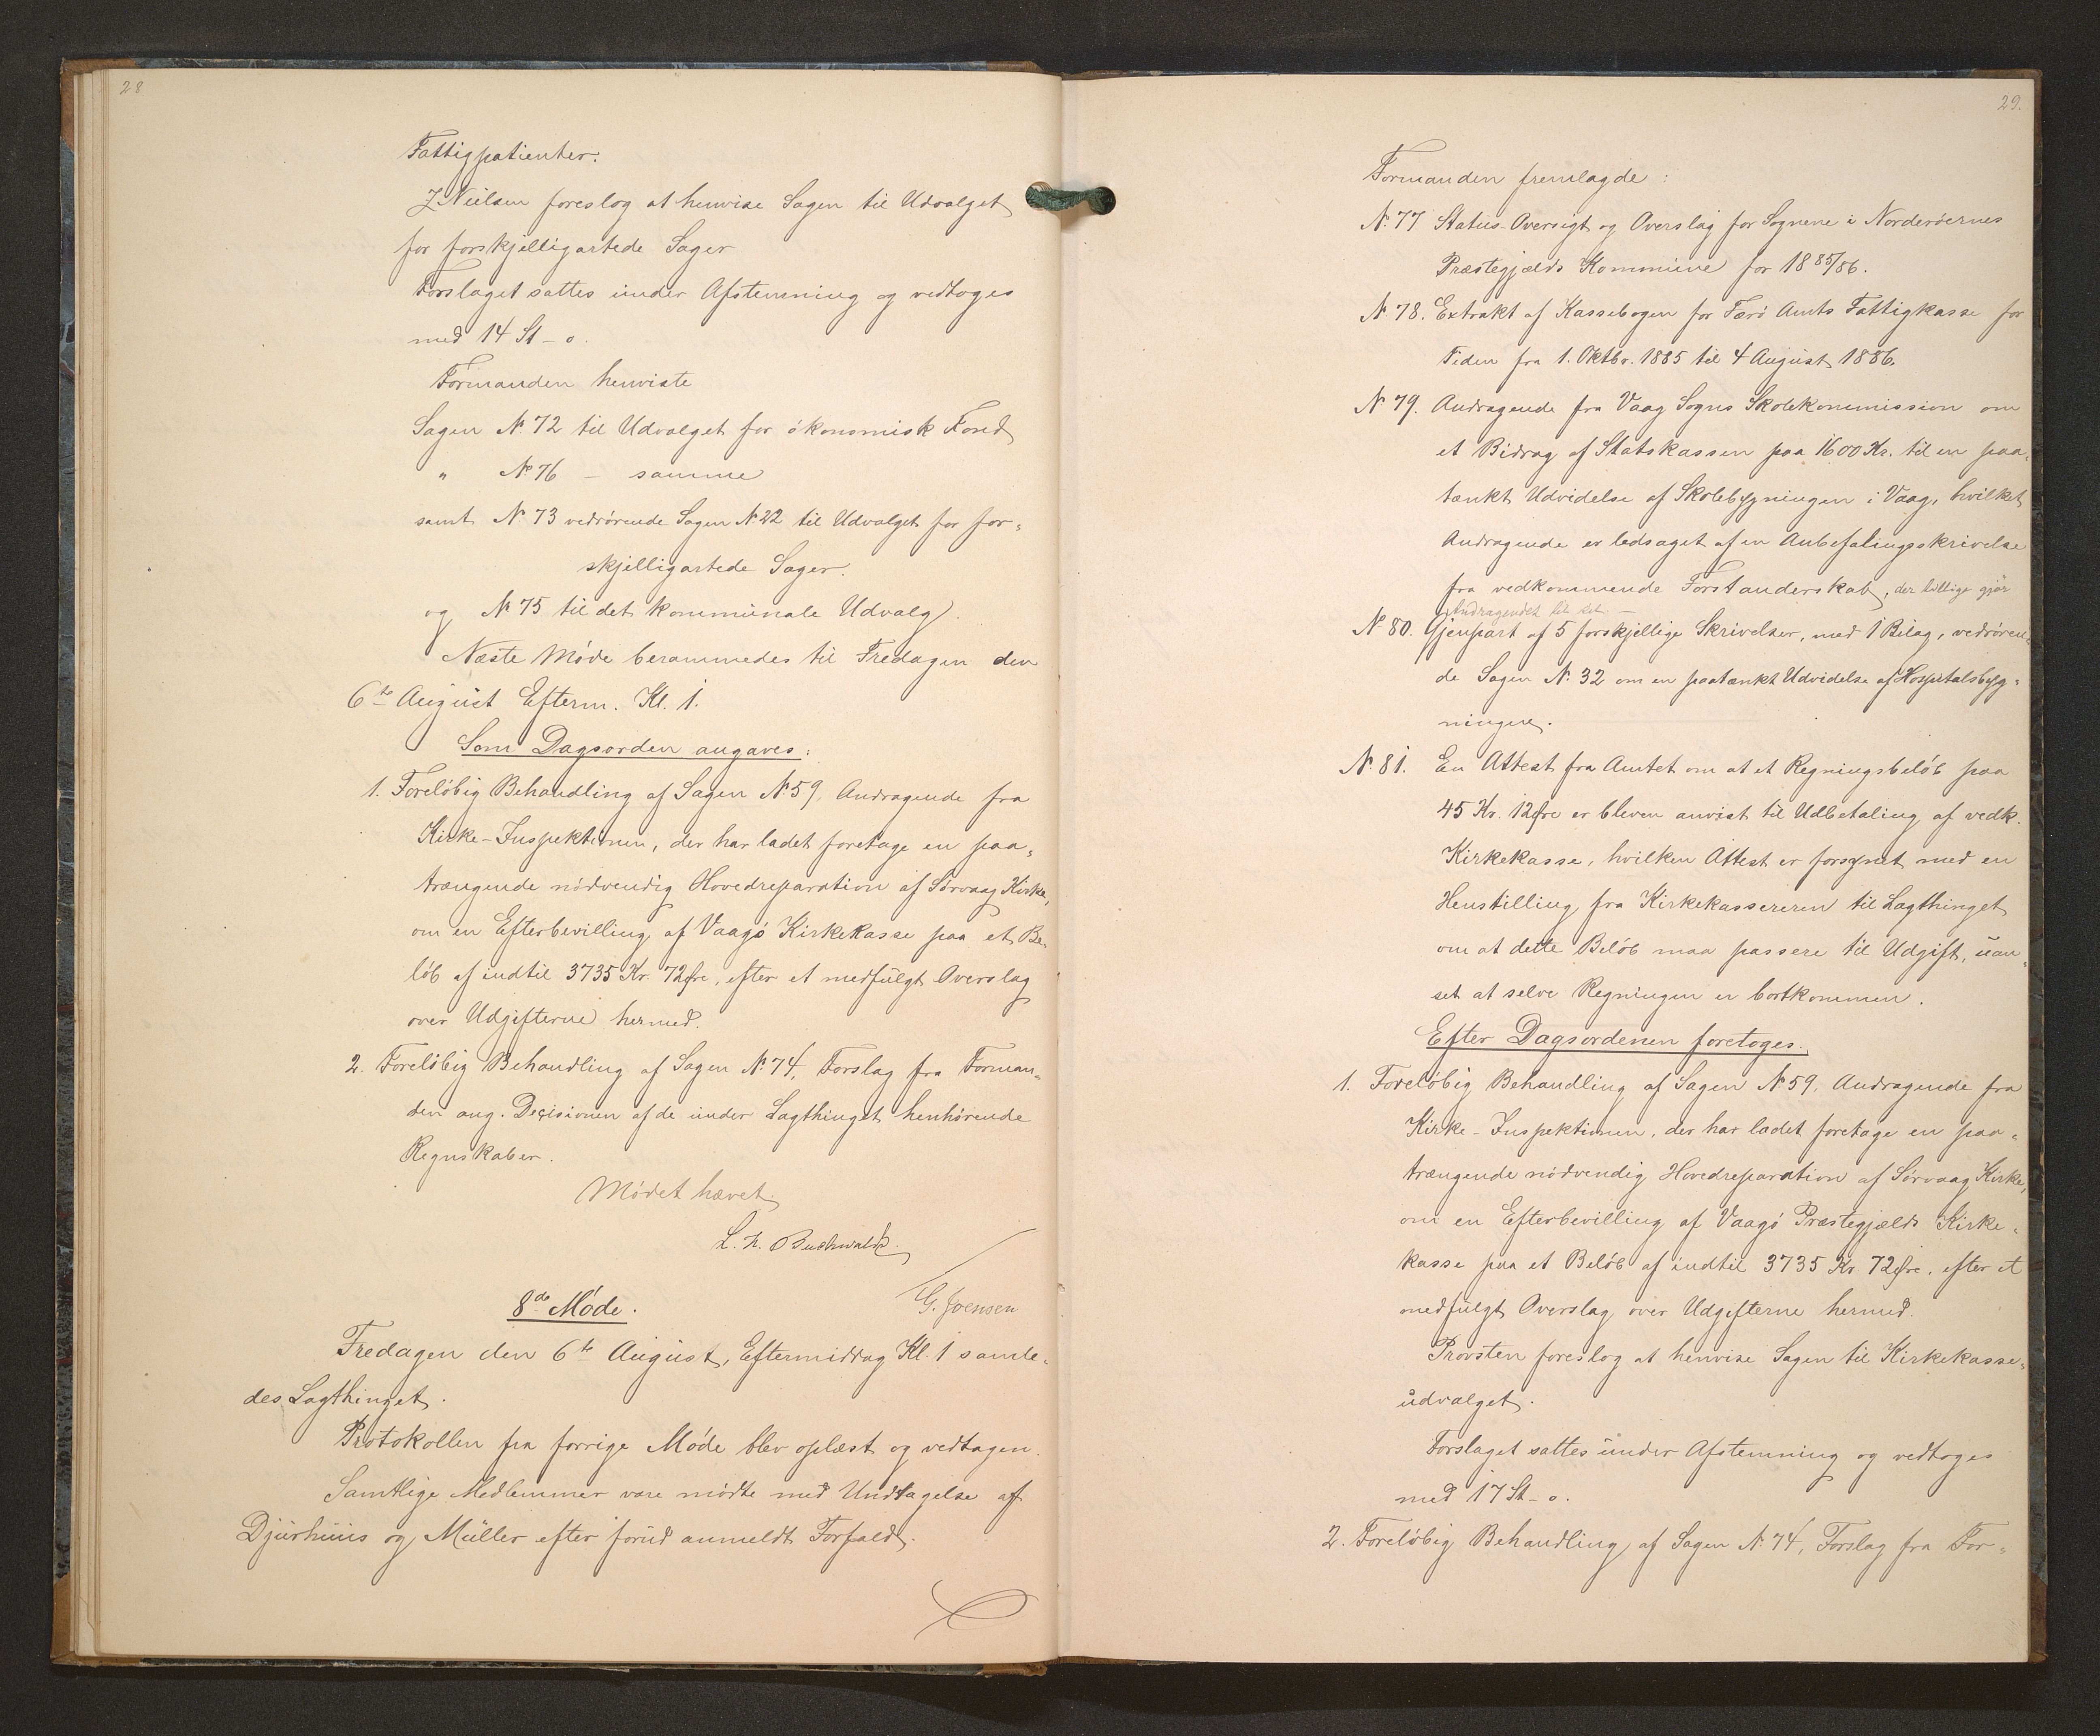 28
Fattigpatienter.
J. Nielsen foreslog at henvise Sagen til Udvalget
for forskjelligartede Sager
Forslaget sattes under Afstemning og vedtoges
med 14 St - o.
Formanden henviste
Sagen № 72 til Udvalget for ökonomisk Fond
" № 76 - samme
samt № 73 vedrörende Sagen № 22 til Udvalget for for-
skjelligartede Sager.
og № 75 til det kommunale Udvalg.
Næste Möde berammedes til Fredagen den
6te August Efterm. Kl. 1.
Som Dagsorden angaves:
1. Forelöbig Behandling af Sagen № 59, Andragende fra
Kirke-Inspektionen, der har ladet foretage en paa-
trængende nödvendig Hovedreparation af Sörvaag Kirke,
om en Efterbevilling af Vaagö Kirkekasse paa et Be-
löb af indtil 3735 Kr. 72 Öre, efter et medfulgt Overslag
over Udgifterne hermed.
2. Forelöbig Behandling af Sagen № 74, Forslag fra Forman-
den ang. Decisionen af de under Lagthinget henhörende
Regnskaber.
Mödet hævet
L. H. Buchwaldt.
G. Joensen
8de Möde.
Fredagen den 6te August, Eftermiddag Kl. 1 samle-
des Lagthinget.
Protokollen fra forrige Möde blev oplæst og vedtagen.
Samtlige Medlemmer vare mödte med Undtagelse af
Djurhuus og Müller efter forud anmeldt Forfald.
29.
Formanden fremlagde:
№ 77 Status-Oversigt og Overslag for Sognene i Norderöernes
Præstegjælds Kommune for 1885/86.
№ 78. Extrakt af Kassebogen for Færö Amts Fattigkasse for
Tiden fra 1. Oktbr. 1885 til 4 August 1886.
№ 79. Andragende fra Vaag Sogns Skolekommission om
et Bidrag af Statskassen paa 1600 Kr. til en paa-
tænkt Udvidelse af Skolebygningen i Vaag, hvilket
Andragende er ledsaget af en Anbefalingsskrivelse
fra vedkommende Forstanderskab, der tillige gjör
Andragendet til sit. -
№ 80. Gjenpart af 5 forskjellige Skrivelser, med 1 Bilag, vedrören-
de Sagen № 32 om en paatænkt Udvidelse af Hospitalsbyg-
ningen.
№ 81. En Attest fra Amtet om at et Regningsbelöb paa
45 Kr. 12 Öre er bleven anvist til Udbetaling af vedk.
Kirkekasse, hvilken Attest er forsynet med en
Henstilling fra Kirkekassereren til Lagthinget
om at dette Belöb maa passere til Udgift, uan-
set at selve Regningen er bortkommen.
Efter Dagsordenen foretoges.
1. Forelöbig Behandling af Sagen № 59, Andragende fra
Kirke-Inspektionen, der har ladet foretage en paa-
trængende nödvendig Hovedreparation af Sörvaag Kirke,
om en Efterbevilling af Vaagö Præstegjælds Kirke-
kasse paa et Belöb af indtil 3735 Kr 72 Öre, efter et
medfulgt Overslag over Udgifterne hermed.
Provsten foreslog at henvise Sagen til Kirkekasse-
udvalget.
Forslaget sattes under Afstemning og vedtoges
med 17 St - o.
2. Forelöbig Behandling af Sagen № 74, Forslag fra For-